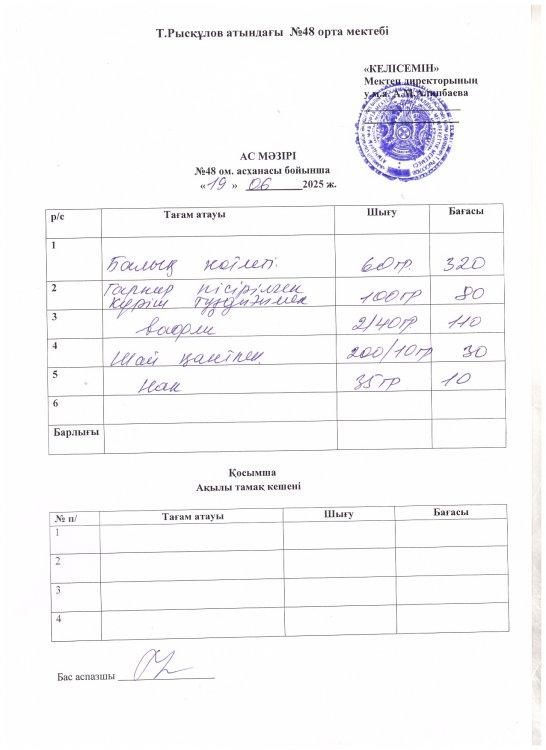 Т.Рысқұлов атындағы №48 орта мектебі
«КЕЛІСЕМІН»
Мектеп директорының
у.м.а. А.М.Алипбаева
АС МӘЗІРІ
№48 ом. асханасы бойынша
« 19 » 06 2025 ж.
р/с Тағам атауы Шығу Бағасы
1 Балық котлеті. 60гр. 320
2 Гарнир пісірілген
күріш 100гр 80
3 вафли 2/40гр 110
4 Шай қантпен. 200/10гр 30
5 Нан 35гр 10
6
Барлығы
Қосымша
Ақылы тамақ кешені
№ п/ Тағам атауы Шығу Бағасы
1
2
3
4
Бас аспазшы